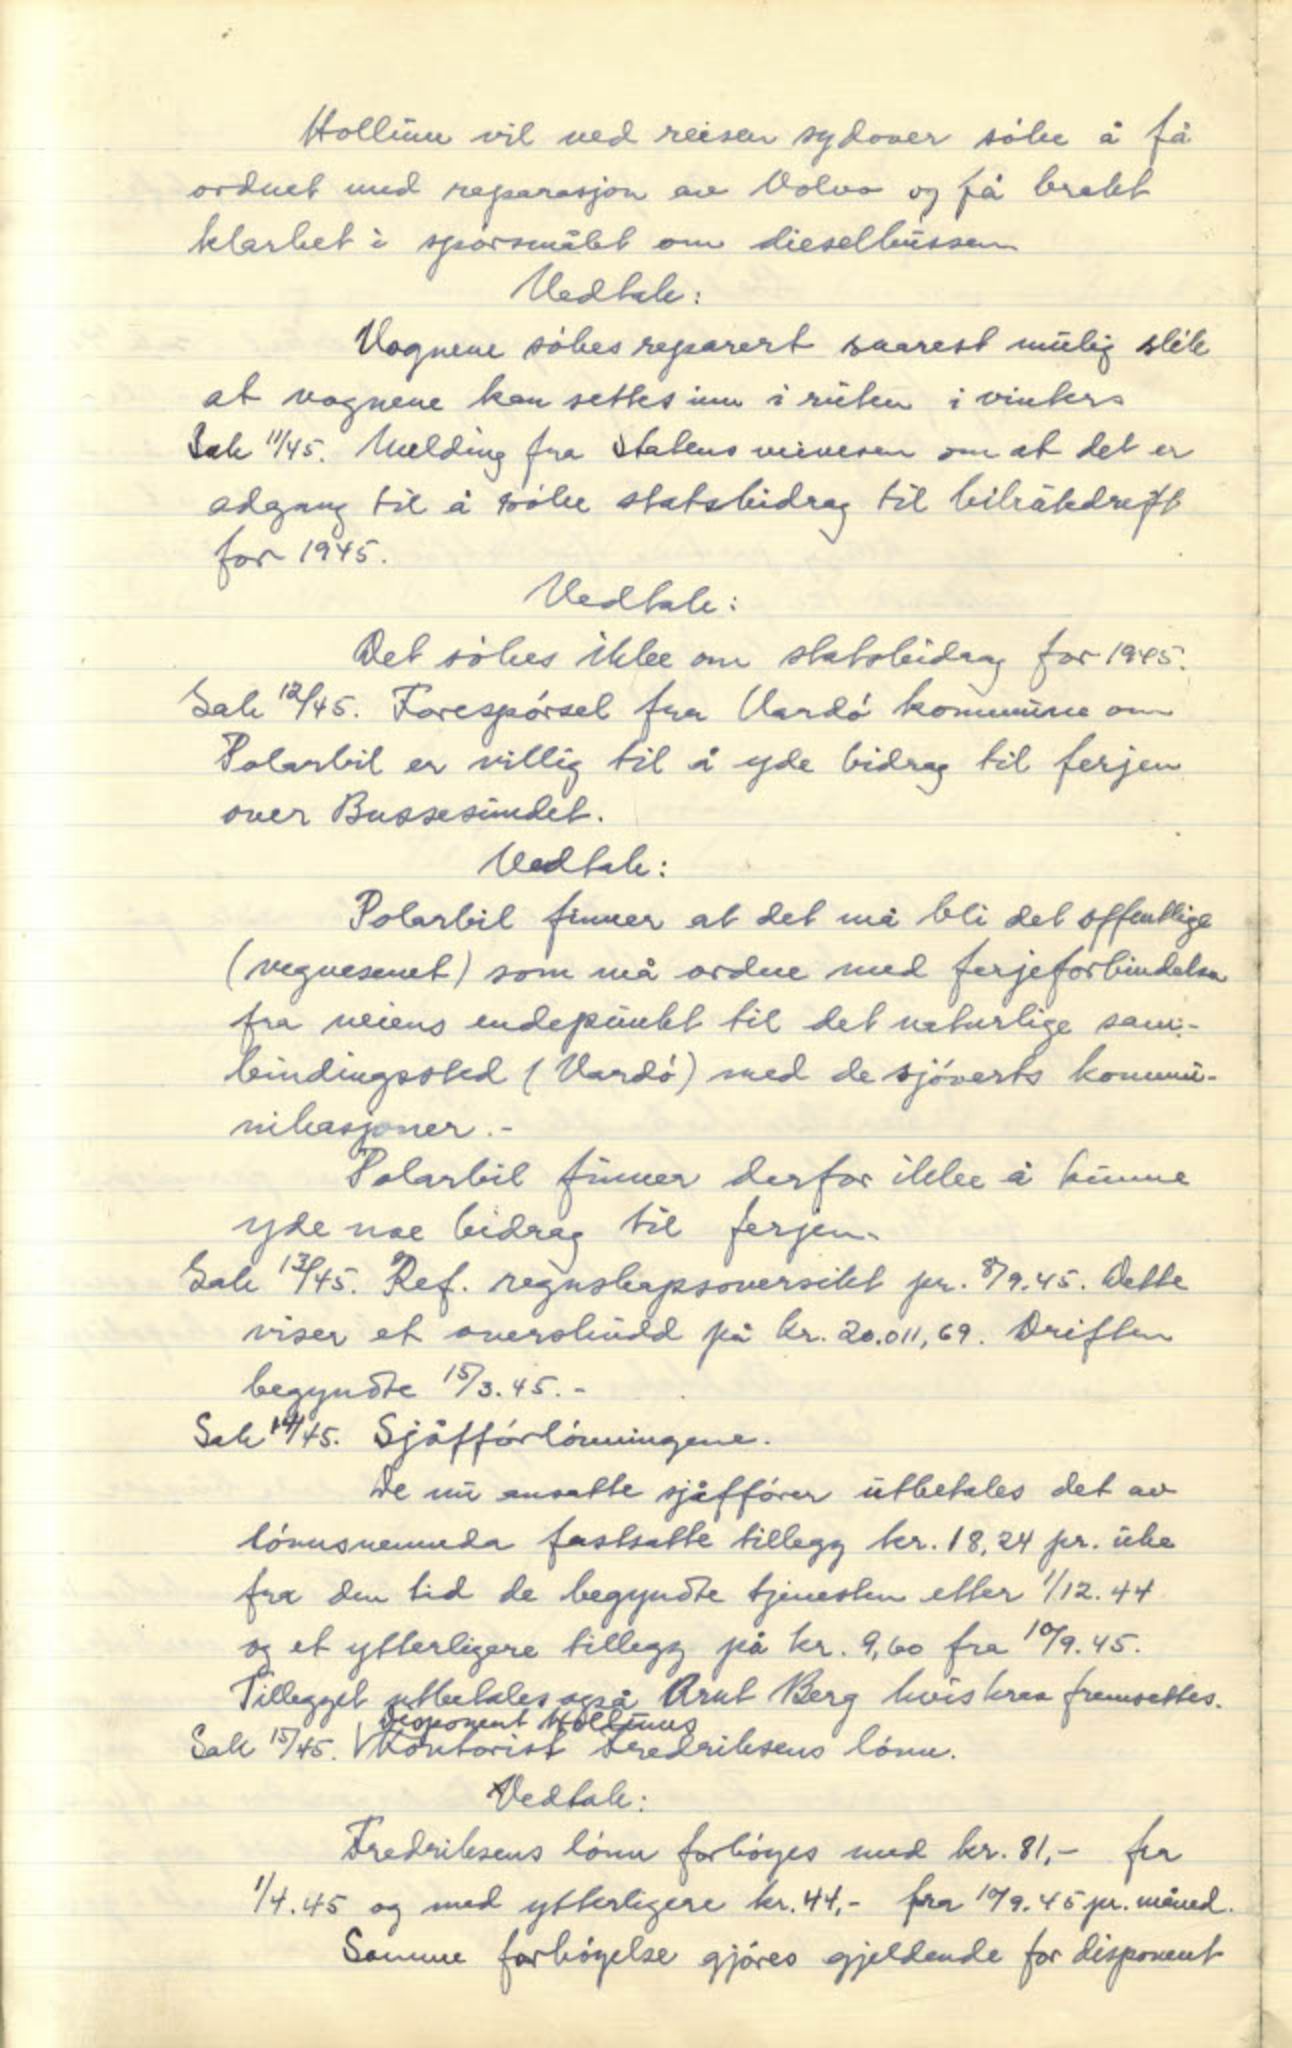 Hollum vil ved reisen sydover söke å få
ordnet med reparasjon av Volvo og få brakt
klarhet i spörsmålet om dieselbussen
Vedtak:
Vognene sökes reparert snarest mulig slik
at vognene kan settes inn i ruten i vinter.
Sak 11/45. Melding fra Statens veivesen om at det er
adgang til å söke statsbidrag til bilrutedrift
for 1945.
Vedtak:
Det sökes ikke om statsbidrag for 1945.
Sak 12/45. Forespörsel fra Vardö kommune om
Polarbil er villig til å yde bidrag til ferjen
over Bussesundet.
Vedtak:
Polarbil finner at det må bli det offentlige
(vegvesenet) som må ordne med ferjeforbindelsen
fra veiens endepunkt til det naturlige sam-
bindingssted (Vardö) med de sjöverts kommu-
nikasjoner.-
Polarbil finner derfor ikke å kunne
yde noe bidrag til ferjen.
Sak 13/45. Ref. regnskapsoversikt pr. 8/9.45. Dette
viser et overskudd på kr. 20.011,69. Driften
begyndte 15/3.45.-
Sak 14/45. Sjåfförlönningene.
De nu ansatte sjåfförer utbetales det av
lönnsnemnda fastsatte tillegg kr. 18,24 pr. uke
fra den tid de begyndte tjenesten etter 1/12.44
og et ytterligere tillegg på kr. 9,60 fra 10/9.45.
Tillegget utbetales også Arnt Berg hvis krav fremsettes.
Disponent Hollums
Sak 15/45. Kontorist Fredriksens lönn.
Vedtak:
Fredriksens lönn forhöyes med kr. 81,- fra
1/4.45 og med ytterligere kr. 44,- fra 10/9.45 pr. måned.
Samme forhöyelse gjöres gjeldende for disponent